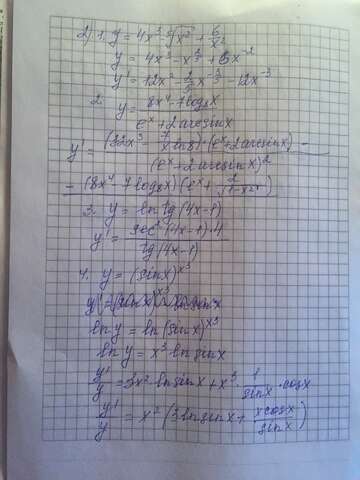 2) 1. y = 4x³ - ⁵√x³ + 6/x²
y = 4x³ - x^(3/5) + 6x^(-2)
y' = 12x² - 3/5 x^(-2/5) - 12x^(-3)
2. y = (8x⁴ - 7log₈x)/(eˣ + 2arcsinx)
y' = (32x³ - 7/(x ln8))·(eˣ + 2arcsinx) -
(eˣ + 2arcsinx)²
- (8x⁴ - 7log₈x)(eˣ + 2/√(1-x²))
3. y = ln tg(4x-1)
y' = (sec²(4x-1)·4)/(tg(4x-1))
4. y = (sinx)^(x³)
ln y = ln(sinx)^(x³)
ln y = x³·ln sinx
y'/y = 3x²·ln sinx + x³·1/sinx·cosx
y'/y = x²(3ln sinx + xcosx/sinx)